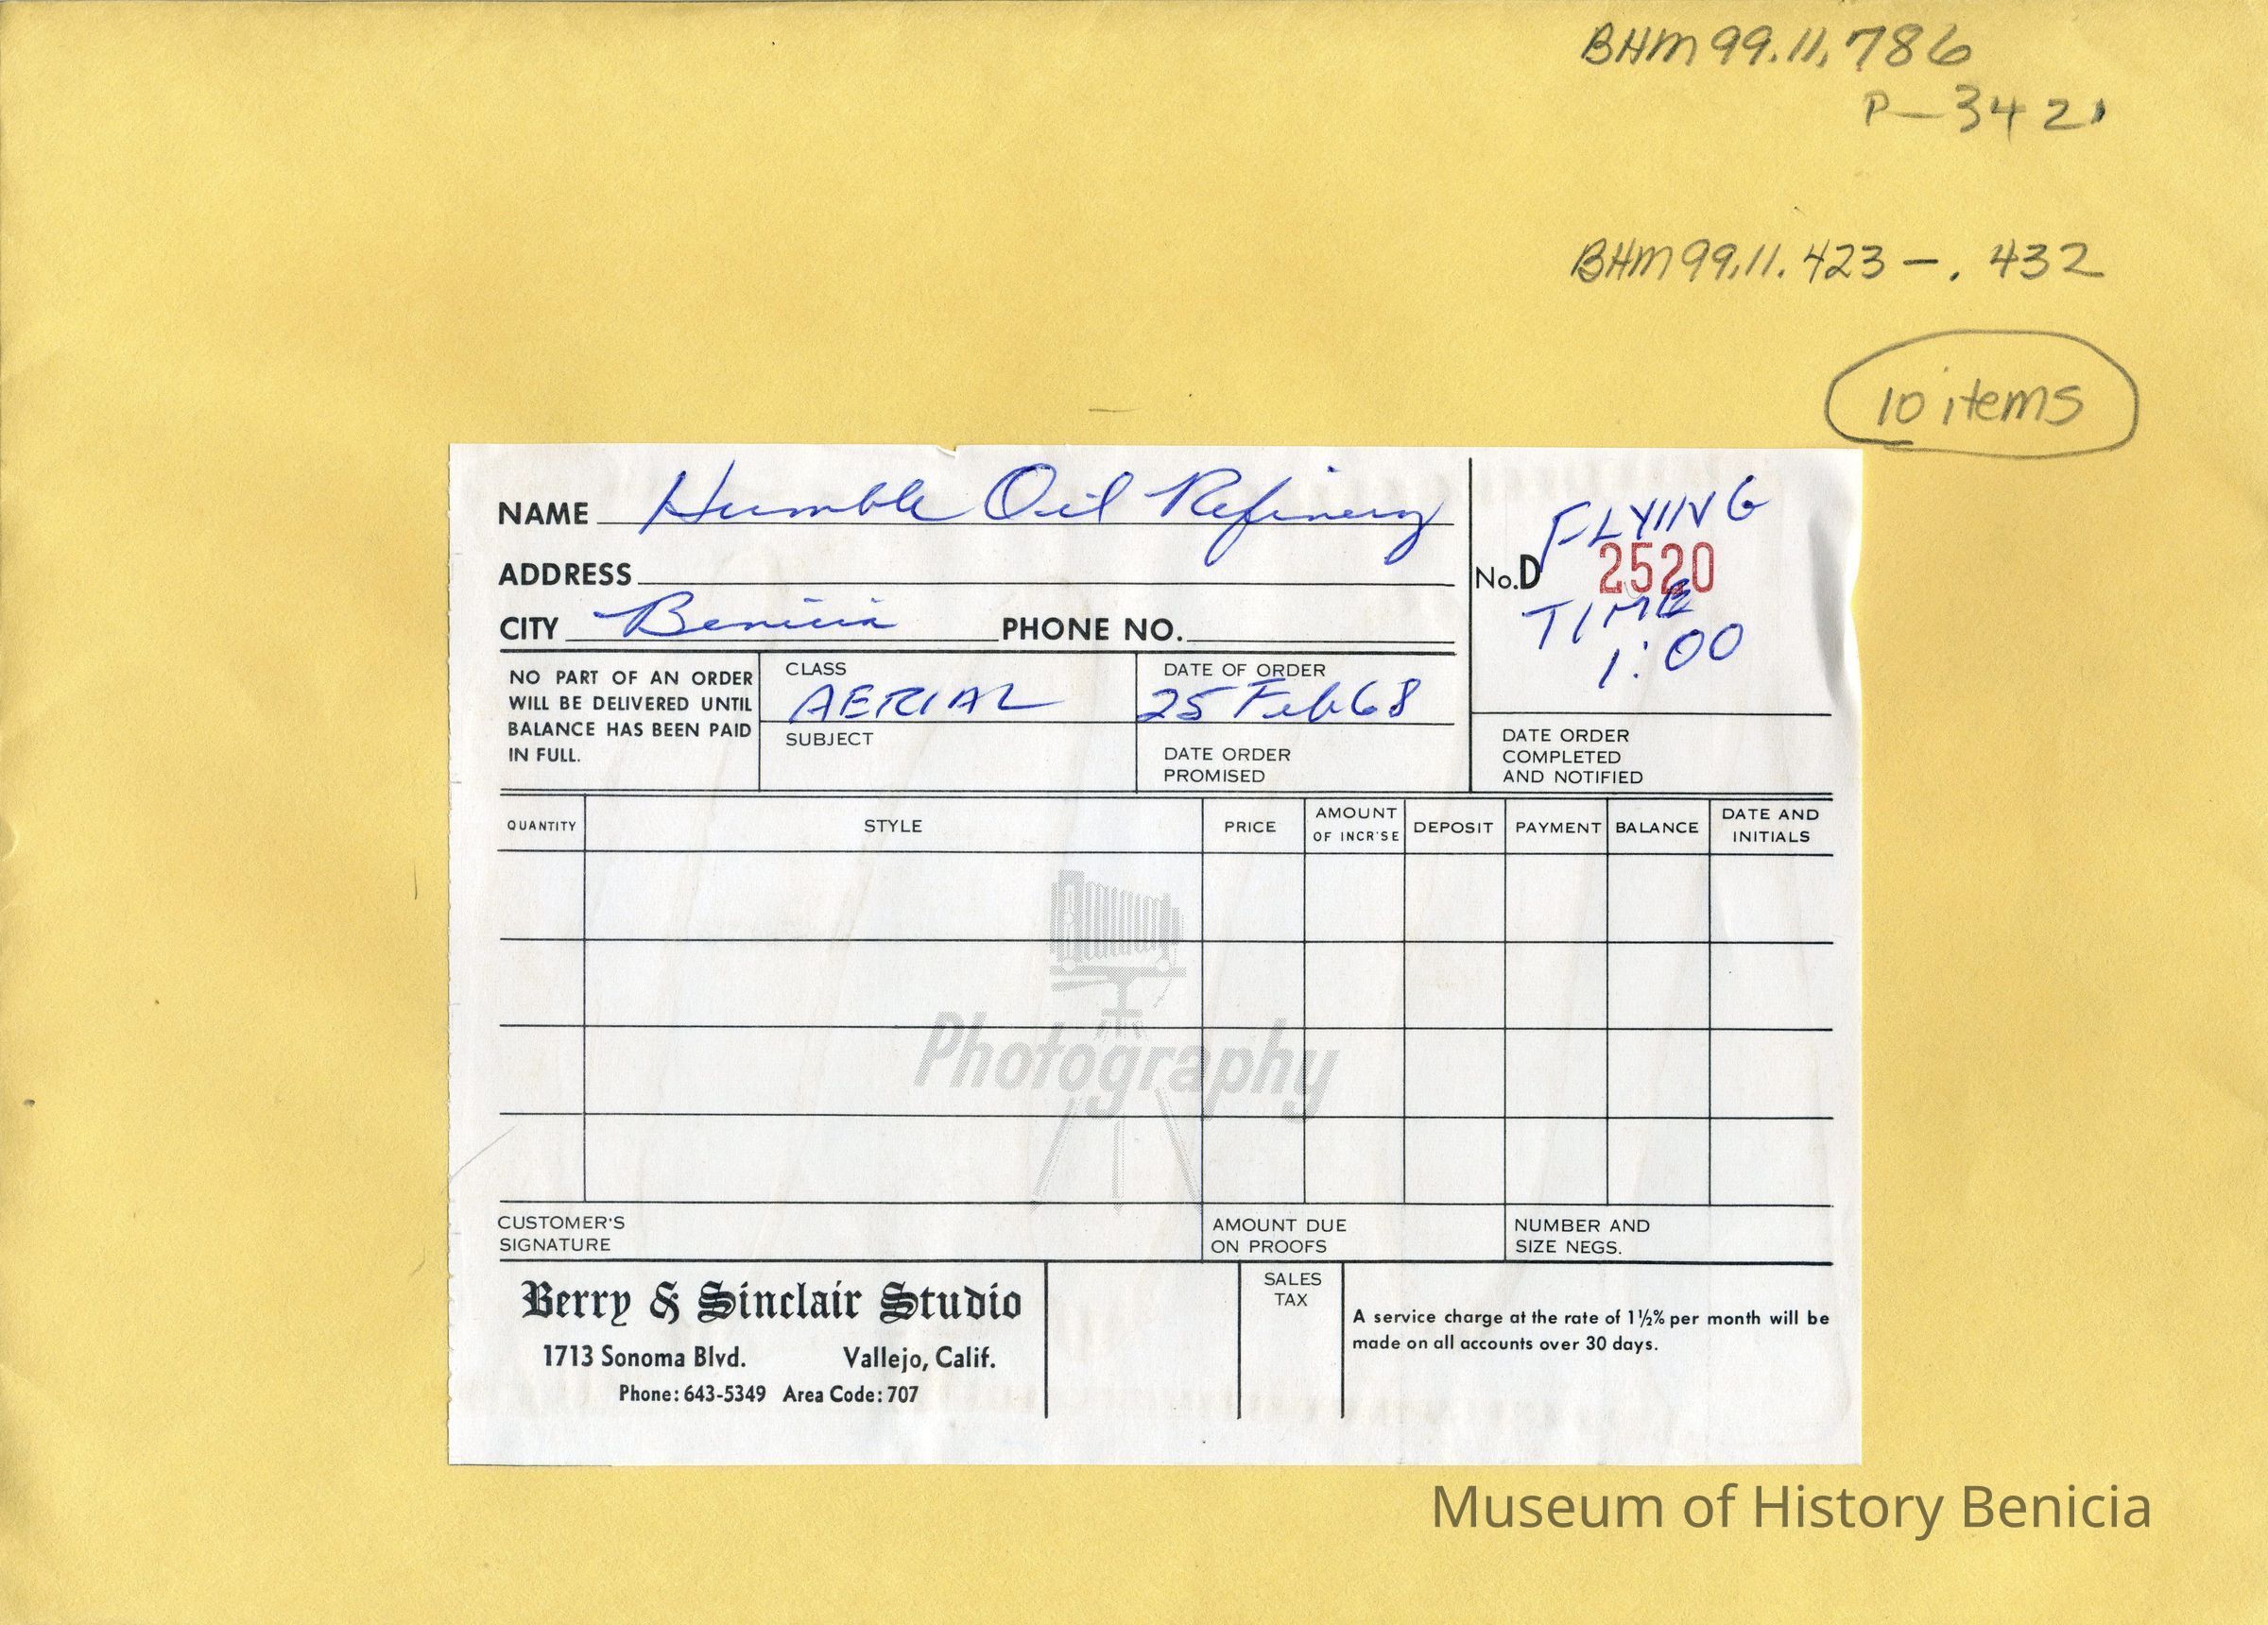 BHM 99.11.786
P-3421
BHM 99.11.423 - .432
10 items
NAME Humble Oil Refinery
ADDRESS
CITY Benicia PHONE NO.
FLYING
No.D 2520
TIME
1:00
NO PART OF AN ORDER
WILL BE DELIVERED UNTIL
BALANCE HAS BEEN PAID
IN FULL.
CLASS
AERIAL
SUBJECT
DATE OF ORDER
25 Feb 68
DATE ORDER
PROMISED
DATE ORDER
COMPLETED
AND NOTIFIED
QUANTITY
STYLE
PRICE
AMOUNT
OF INCR'SE
DEPOSIT
PAYMENT
BALANCE
DATE AND
INITIALS
Photography
CUSTOMER'S
SIGNATURE
AMOUNT DUE
ON PROOFS
NUMBER AND
SIZE NEGS.
Berry & Sinclair Studio
1713 Sonoma Blvd. Vallejo, Calif.
Phone: 643-5349 Area Code: 707
SALES
TAX
A service charge at the rate of 1½% per month will be
made on all accounts over 30 days.
Museum of History Benicia